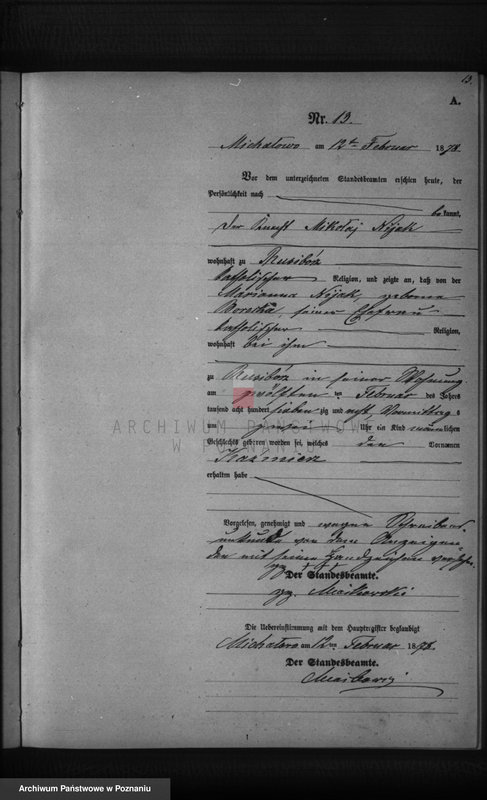 13.
A.
Nr. 13.
Michałowo am 12ten Februar 1878.
Vor dem unterzeichneten Standesbeamten erschien heute, der
Persönlichkeit nach
bekannt,
der Knecht Mikołaj
wohnhaft zu Rusibórz
katholischer Religion, und zeigte an, daß von der
Marianna geborene
seiner Ehefrau
katholischer Religion,
wohnhaft bei ihm
zu Rusibórz in seiner Wohnung
am zwölften ten Februar des Jahres
tausend acht hundert sieben zig und acht, Vormittags
um Uhr ein Kind männlichen
Geschlechts geboren worden sei, welches den Vornamen
Kazmierz
erhalten habe
Vorgelesen, genehmigt und wegen Schreibens
unkunde von dem Anzeigen
den mit seinem Handzeichen versehen.
Der Standesbeamte.
gz.
Die Uebereinstimmung mit dem Hauptregister beglaubigt
Michałowo am 12ten Februar 1878.
Der Standesbeamte.
ARCHIWUM PAŃSTWOWE
W POZNANIU
Archiwum Państwowe w Poznaniu